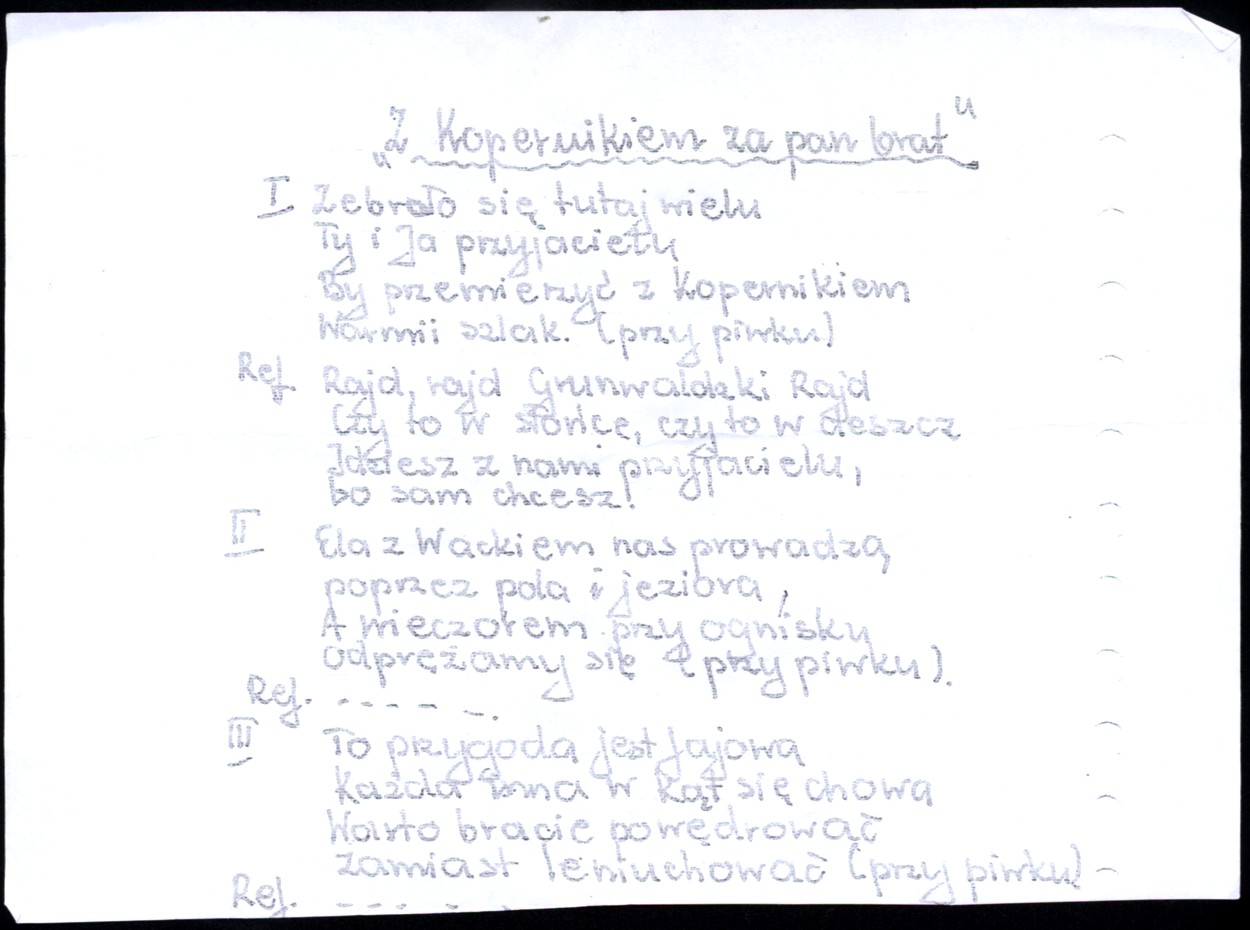 „Z Kopernikiem za pan brat"
I Zebrało się tutaj wielu
Ty i Ja przyjacielu
By przemierzyć z Kopernikiem
Warmii szlak. (przy piwku)
Ref. Rajd, rajd Grunwaldzki Rajd
Czy to w słońce, czy to w deszcz
Idziesz z nami przyjacielu,
bo sam chcesz!
II Ela z Wackiem nas prowadzą
poprzez pola i jeziora,
A wieczorem przy ognisku
odprężamy się (przy piwku).
Ref. - - - - -.
III To przygoda jest fajowa
Każda inna w kąt się chowa
Warto bracie powędrować
zamiast leniuchować (przy piwku)
Ref. - - - - -